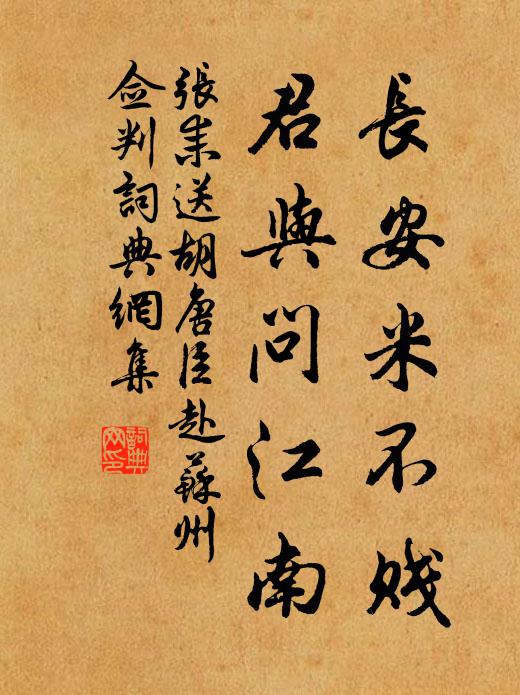 長安米不賤
君與問江南
張耒送胡唐臣赴蘇州
僉判詞典網集
詞典
网印